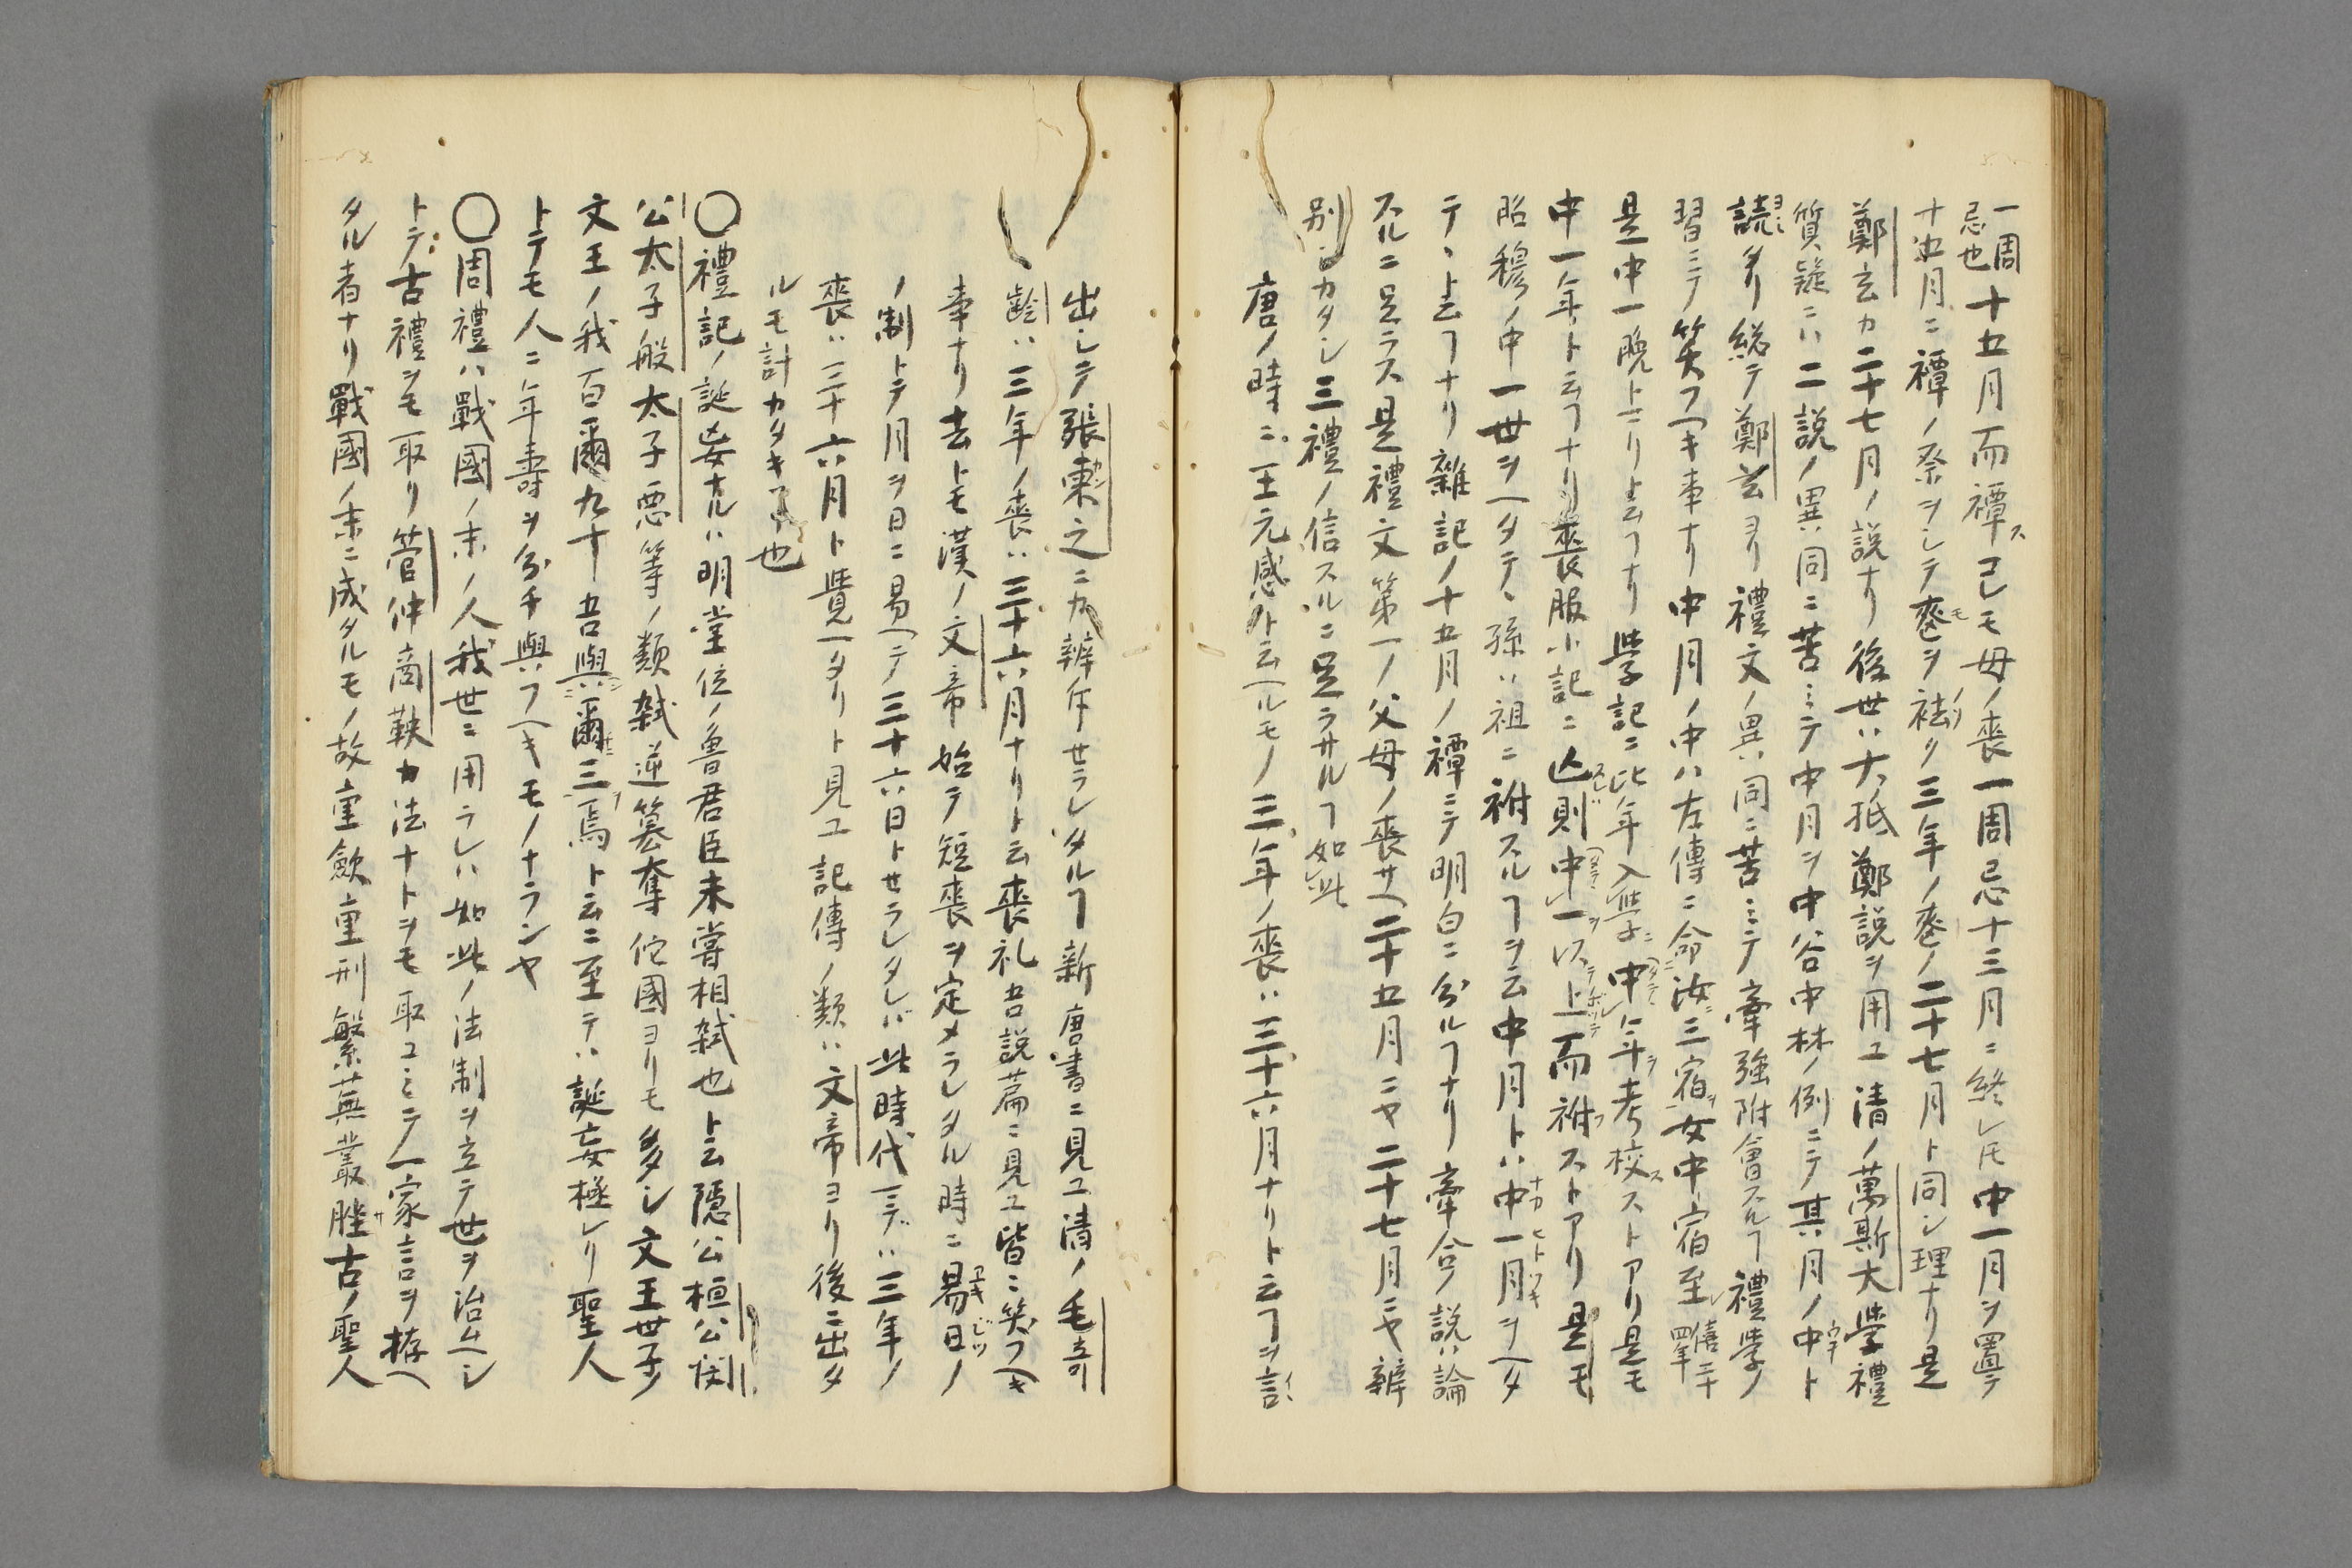 一周忌也十五月而禫ス己モ母ノ喪一周忌十三月ニ終レ𪜈中一月ヲ置テ
十五月ニ禫ノ祭ヲシテ喪ヲ袪リ三年ノ喪ノ二十七月ト同シ理ナリ是
鄭玄カ二十七月ノ説ナリ後世ハ大抵鄭説ヲ用ユ清ノ萬斯大學禮
質疑ニハ二説ノ異同ニ苦ミテ中月ヲ中谷中林ノ例ニテ其月ノ中ト
読タリ総テ鄭玄ヨリ禮文ノ異同ニ苦ミテ牽強附會スルヿ禮學ノ
習ニテ笑フヘキ事ナリ中月ノ中ハ左傳ニ命汝三宿女中宿至僖二十四年
是中一晩トマリト云フナリ學記ニ比年入學中年考校ストアリ是モ
中一年ト云フナリ喪服小記ニ亾則中一以上而祔ストアリ是モ
昭穆ノ中一世ヲヘタテヽ孫ハ祖ニ祔スルヿヲ云中月トハ中一月ヲヘタ
テヽト云フナリ雜記ノ十五月ノ禫ニテ明白ニ分ルヿナリ牽合ノ説ハ論
スルニ足ラス是禮文第一ノ父母ノ喪サヘ二十五月ニヤ二十七月ニヤ辨
別シカタシ三禮ノ信スルニ足ラサルヿ如此
唐ノ時ニ王元感ト云ヘルモノ三年ノ喪ハ三十六月ナリト云フヿヲ言
出シテ張柬之ニ力辨斥セラレタルヿ新唐書ニ見ユ清ノ毛奇
齢ハ三年ノ喪ハ三十六月ナリト云喪礼吾説篇ニ見ユ皆ニ笑フヘキ
事ナリ去トモ漢ノ文帝始テ短喪ヲ定メラレタル時ニ易日ノ
ノ制トテ月ヲ日ニ易ヘテ三十六日トセラレタレバ此時代マデハ三年ノ
喪ハ三十六月ト覺ヘタリト見ユ記傳ノ類ハ文帝ヨリ後ニ出タ
ルモ計カタキヿ也
〇禮記ノ誕妄ナルハ明堂位ノ魯君臣未嘗相弑也ト云隠公桓公閔
公太子般太子悪等ノ類弑逆簒奪佗國ヨリモ多シ文王世子ノ
文王ノ我百爾九十吾與爾三焉ト云ニ至テハ誕妄極レリ聖人
トテモ人ニ年壽ヲ分チ與フヘキモノナランヤ
〇周禮ハ戰國ノ末ノ人我世ニ用ラレハ如此ノ法制ヲ立テ世ヲ治ムヘシ
トテ古禮ヲモ取リ管仲商鞅カ法ナトヲモ取ユミニテ一家言ヲ拵ヘ
タル者ナリ戰國ノ末ニ成タルモノ故重斂重刑繁蕪叢脞古ノ聖人